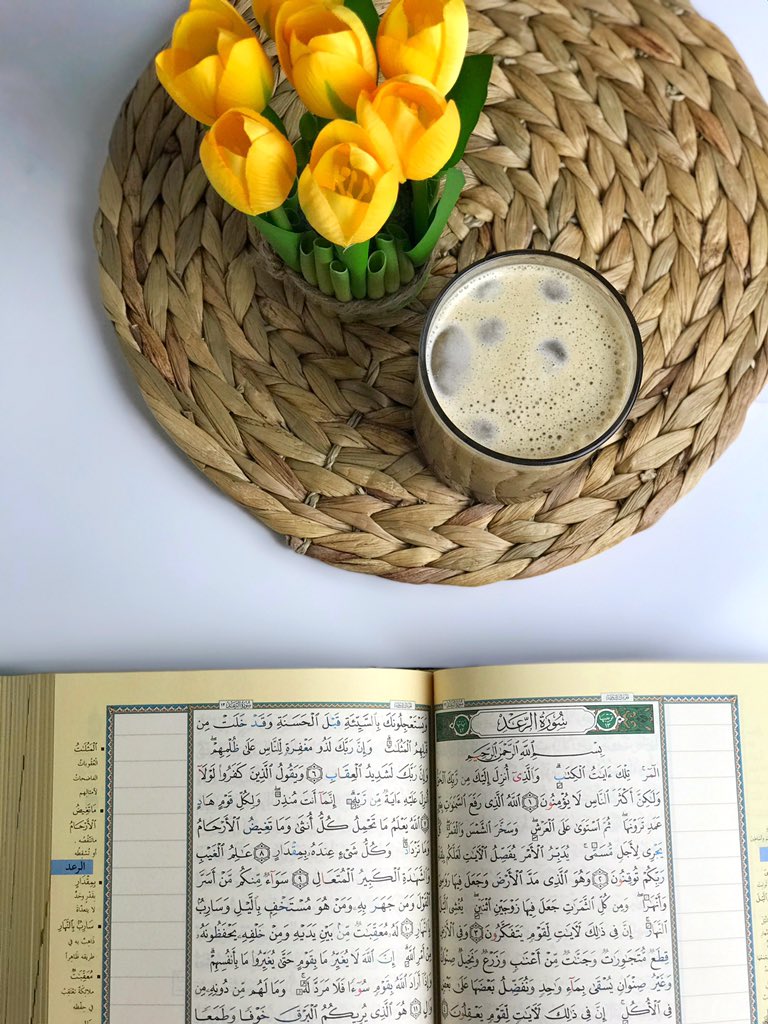 سُورَةُ الرَّعْدِ
بِسْمِ اللَّهِ الرَّحْمَٰنِ الرَّحِيمِ
الٓمٓر ۚ تِلْكَ ءَايَٰتُ ٱلْكِتَٰبِ ۗ وَٱلَّذِىٓ أُنزِلَ إِلَيْكَ مِن رَّبِّكَ
وَلَٰكِنَّ أَكْثَرَ ٱلنَّاسِ لَا يُؤْمِنُونَ ١ ٱللَّهُ ٱلَّذِى رَفَعَ ٱلسَّمَٰوَٰتِ
عَمَدٍ تَرَوْنَهَا ۖ ثُمَّ ٱسْتَوَىٰ عَلَى ٱلْعَرْشِ ۖ وَسَخَّرَ ٱلشَّمْسَ وَٱلْقَمَرَ
يَجْرِى لِأَجَلٍ مُّسَمًّى ۚ يُدَبِّرُ ٱلْأَمْرَ يُفَصِّلُ ٱلْءَايَٰتِ لَعَلَّكُم
رَبِّكُمْ تُوقِنُونَ ٢ وَهُوَ ٱلَّذِى مَدَّ ٱلْأَرْضَ وَجَعَلَ فِيهَا
وَأَنْهَٰرًا ۖ وَمِن كُلِّ ٱلثَّمَرَٰتِ جَعَلَ فِيهَا زَوْجَيْنِ ٱثْنَيْنِ ۖ يُغْشِى
ٱلنَّهَارَ ۚ إِنَّ فِى ذَٰلِكَ لَءَايَٰتٍ لِّقَوْمٍ يَتَفَكَّرُونَ ٣ وَفِى ٱلْأَرْضِ
قِطَعٌ مُّتَجَٰوِرَٰتٌ وَجَنَّٰتٌ مِّنْ أَعْنَٰبٍ وَزَرْعٌ وَنَخِيلٌ صِنْوَانٌ
وَغَيْرُ صِنْوَانٍ يُسْقَىٰ بِمَآءٍ وَٰحِدٍ وَنُفَضِّلُ بَعْضَهَا عَلَىٰ
فِى ٱلْأُكُلِ ۚ إِنَّ فِى ذَٰلِكَ لَءَايَٰتٍ لِّقَوْمٍ يَعْقِلُونَ ٤
وَيَسْتَعْجِلُونَكَ بِٱلسَّيِّئَةِ قَبْلَ ٱلْحَسَنَةِ وَقَدْ خَلَتْ مِن
قَبْلِهِمُ ٱلْمَثُلَٰتُ ۗ وَإِنَّ رَبَّكَ لَذُو مَغْفِرَةٍ لِّلنَّاسِ عَلَىٰ ظُلْمِهِمْ ۖ
وَإِنَّ رَبَّكَ لَشَدِيدُ ٱلْعِقَابِ ٦ وَيَقُولُ ٱلَّذِينَ كَفَرُوا۟ لَوْلَآ
أُنزِلَ عَلَيْهِ ءَايَةٌ مِّن رَّبِّهِۦٓ ۗ إِنَّمَآ أَنتَ مُنذِرٌ ۖ وَلِكُلِّ قَوْمٍ هَادٍ
٧ ٱللَّهُ يَعْلَمُ مَا تَحْمِلُ كُلُّ أُنثَىٰ وَمَا تَغِيضُ ٱلْأَرْحَامُ
وَمَا تَزْدَادُ ۖ وَكُلُّ شَىْءٍ عِندَهُۥ بِمِقْدَارٍ ٨ عَٰلِمُ ٱلْغَيْبِ
وَٱلشَّهَٰدَةِ ٱلْكَبِيرُ ٱلْمُتَعَالِ ٩ سَوَآءٌ مِّنكُم مَّنْ أَسَرَّ
ٱلْقَوْلَ وَمَن جَهَرَ بِهِۦ وَمَنْ هُوَ مُسْتَخْفٍۭ بِٱلَّيْلِ وَسَارِبٌۢ
١٠ لَهُۥ مُعَقِّبَٰتٌ مِّنۢ بَيْنِ يَدَيْهِ وَمِنْ خَلْفِهِۦ يَحْفَظُونَهُۥ
مِنْ أَمْرِ ٱللَّهِ ۗ إِنَّ ٱللَّهَ لَا يُغَيِّرُ مَا بِقَوْمٍ حَتَّىٰ يُغَيِّرُوا۟ مَا بِأَنفُسِهِمْ ۗ
وَإِذَآ أَرَادَ ٱللَّهُ بِقَوْمٍ سُوٓءًا فَلَا مَرَدَّ لَهُۥ ۚ وَمَا لَهُم مِّن دُونِهِۦ مِن
وَالٍ ١١ هُوَ ٱلَّذِى يُرِيكُمُ ٱلْبَرْقَ خَوْفًا وَطَمَعًا
ٱلْمَثُلَٰتُ
العقوبات
الفاضحات
لأمثالهم
مَا تَغِيضُ
ٱلْأَرْحَامُ
ما تنقصه
أو تسقطه
الرعد
بِمِقْدَارٍ
بقدر وحد
لا يتعداه
سَارِبٌۢ بِٱلنَّهَارِ
ذاهب به في
طريقه ظاهراً
مُعَقِّبَٰتٌ
ملائكة تعتقب
في حفظه